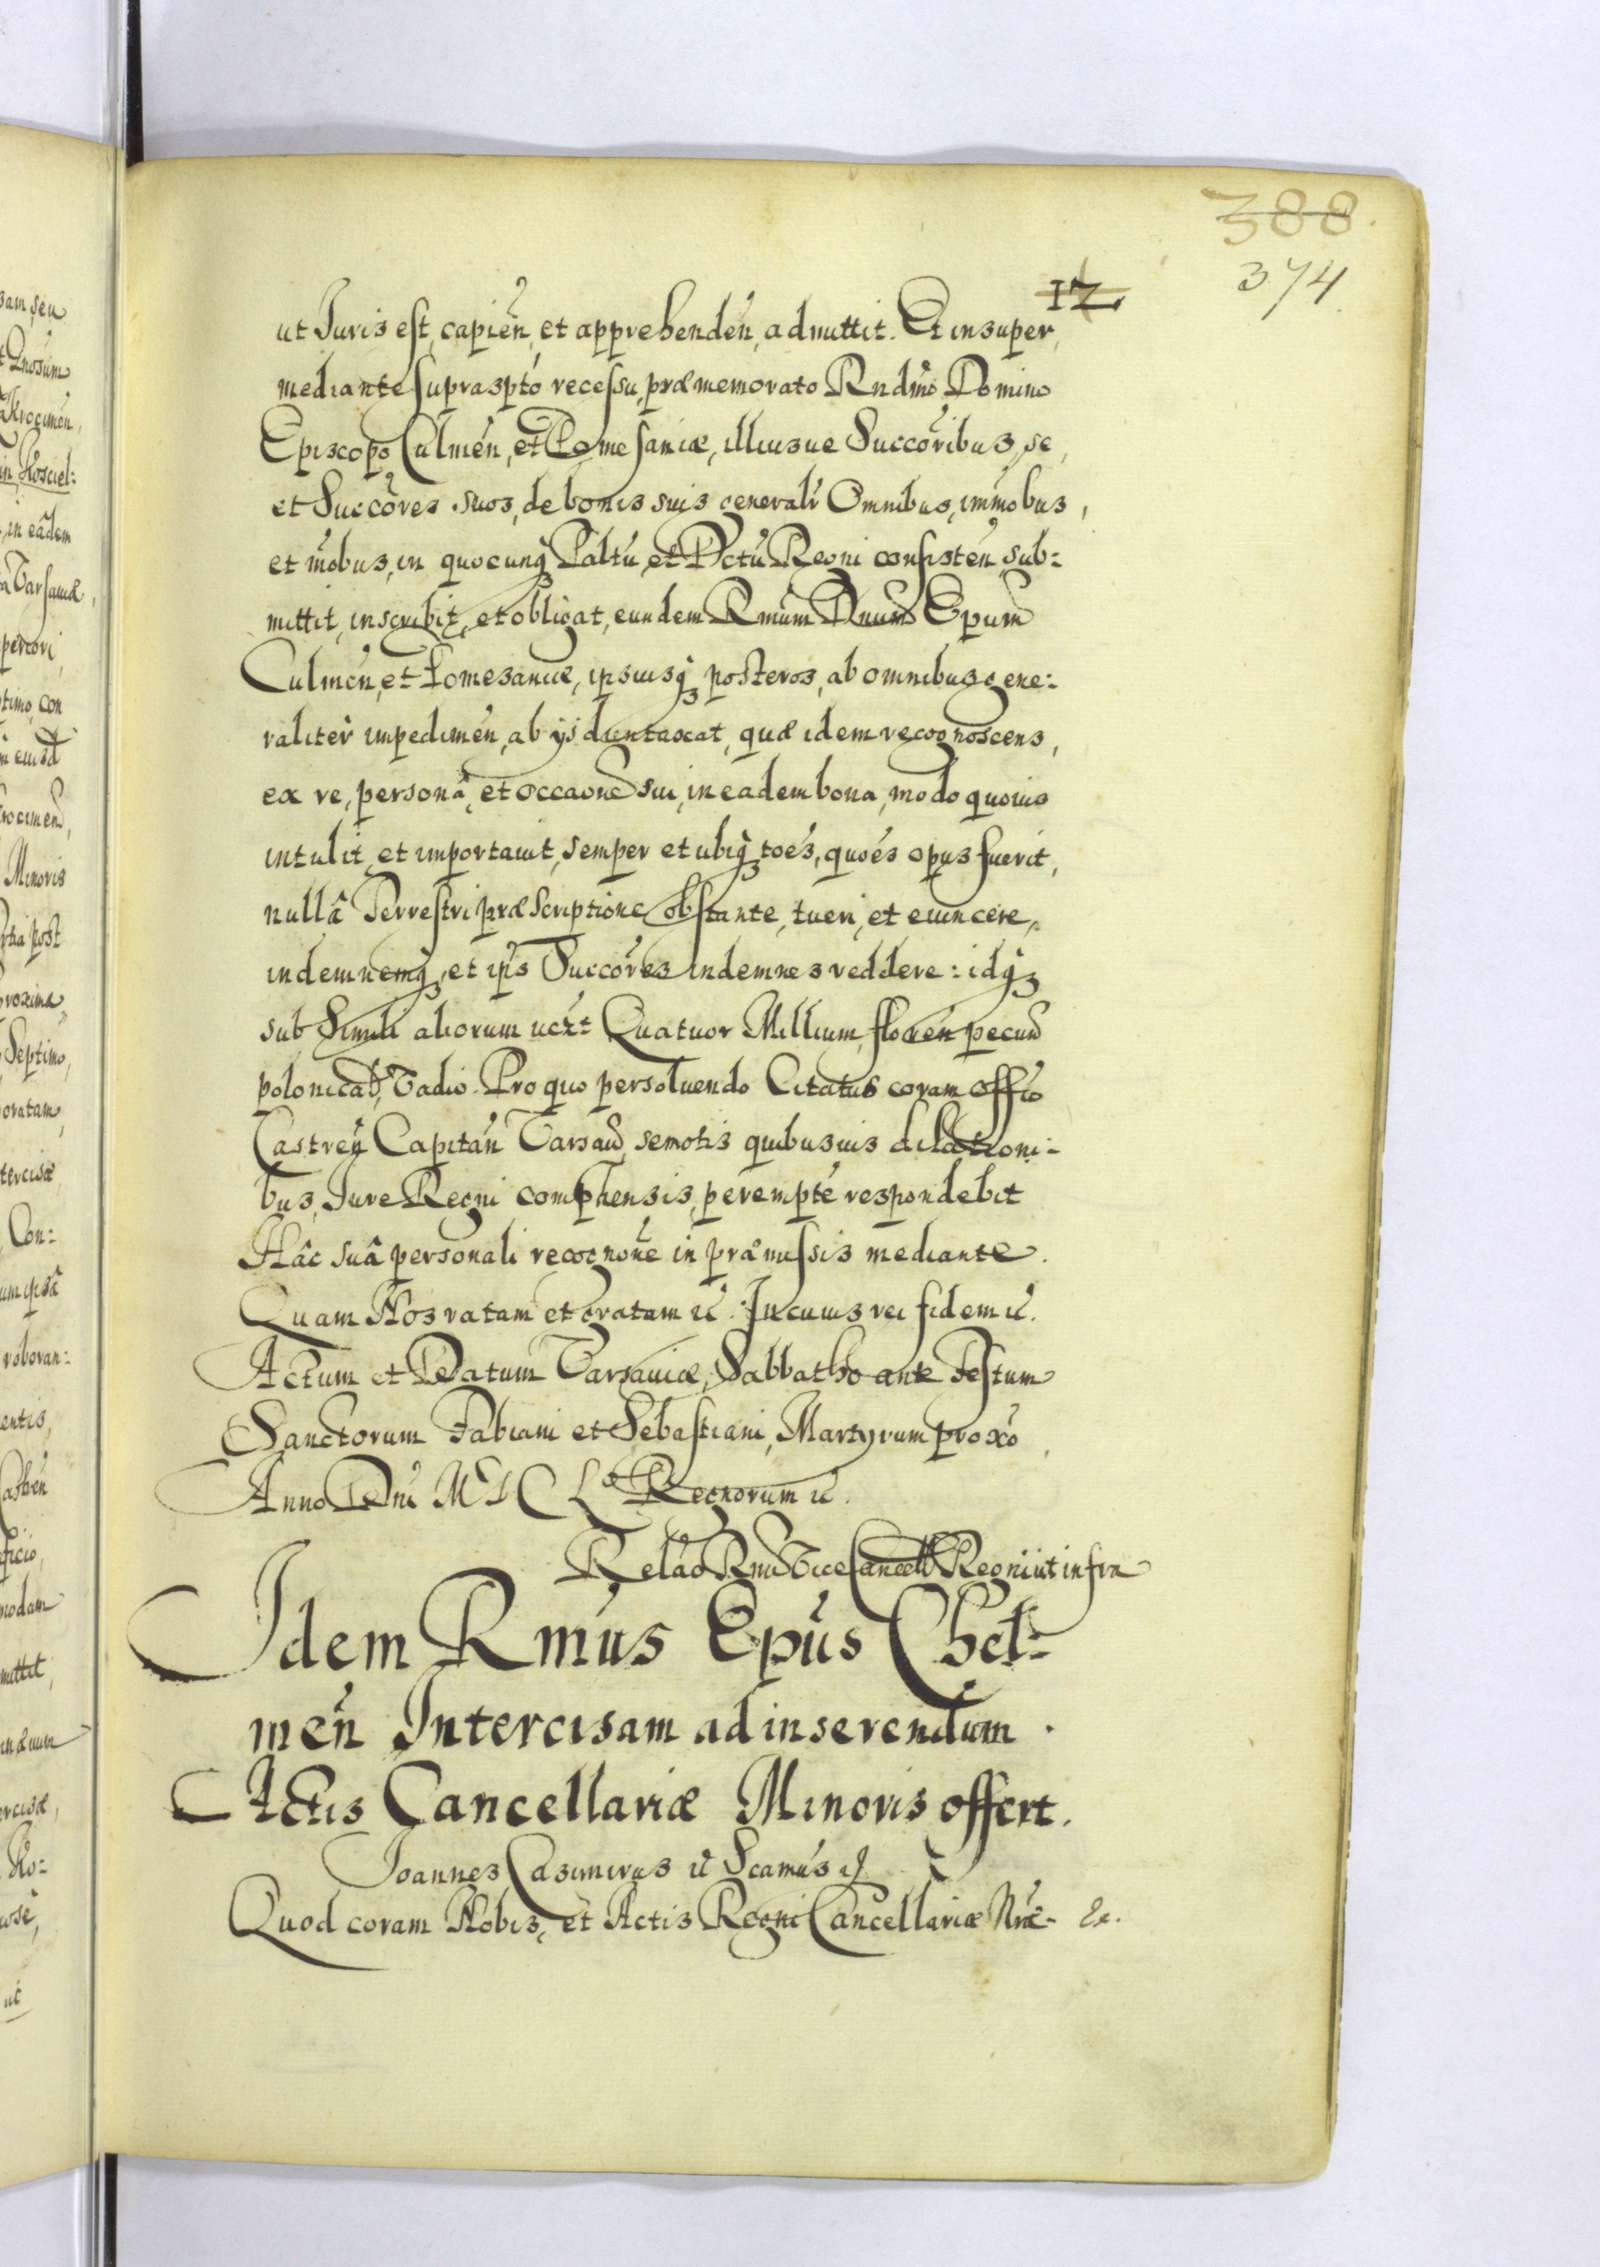 388.
374.
12
ut Juris est, capien̄, et apprehenden̄, admittit. Et insuper,
mediante suprasptó recessu, præmemorato Rndm̄o Domino
Episcopo Culmen̄, et Pomesaniæ, illiusue Succorĩbus, se,
et Succorẽs suos, de bonis suis generalr̄ Omnibus, im̄mobus,
et m̄obus, in quocunq Paltũ et Dctũ Regni consisten̄, sub:
mittit, inscribit, et obligat, eundem Rmũm Dnum Epum̃
Culmen̄, et Pomesaniæ, ipsiusq posteros, ab omnibus gene:
raliter impedimen̄, ab ijs duntaxat, quæ idem recognoscens,
ex re, personâ, et occaone sui, in eadem bona, modo quouis
intulit, et importauit, semper et ubiq toés, quoés opus fuerit,
nullâ Terrestri præscriptione obstante, tueri, et euincere,
indemnemq, et ip̄s Succorẽs indemnes reddere: idq
sub Simili aliorum uczt Quatuor Millium, floren̄ pecun̄
polonical, Vadio. Pro quo persoluendo Citatus coram offio
Castren̄ Capitan̄ Varsau̅, semotis quibusuis dilationi:
bus, Jure Regni comphensis, perempté respondebit
Hâc suâ personali recognonẽ in præmissis mediante.
Quam Nos ratam et gratam ũ. In cuius rei fidem ũ.
Actum et Datum Varsauiæ, Sabbatho ante Festum
Sanctorum Fabiani et Sebastiani, Martyrum proxõ,
Anno Dni M D C L° Regnorum ũ.
Relaõ Rmi Vice Cancell Regni ut infra
Idem Rmũs Epũs Chel:
men̄ Intercisam ad inserendum
Actis Cancellariæ Minoris offert.
Joannes Casimirus ũ Scamũs
Quod coram Nobis, et Actis Regni Cancellariæ Nræ. Ex.